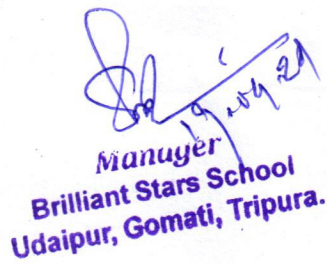 Manager
Brilliant Stars School
Udaipur, Gomati, Tripura.